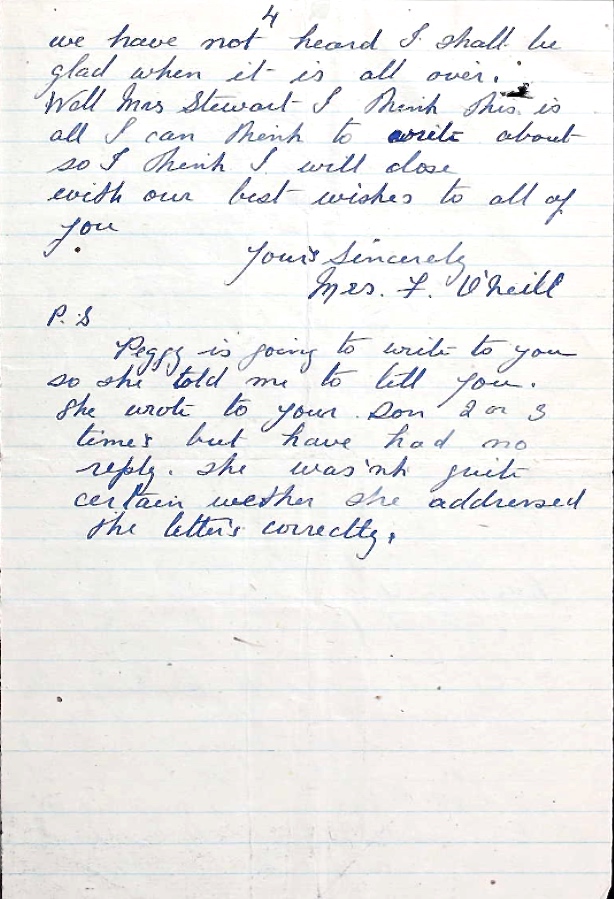 4
we have not heard I shall be
glad when it is all over.
Well Mrs Stewart I think this is
all I can think to write about
so I think I will close
with our best wishes to all of
you
Your's Sincerely
Mrs. F. O'Neill
P.S
Peggy is going to write to you
so she told me to tell you.
She wrote to your son 2 or 3
time's but have had no
reply. she was'nt quite
certain wether she addressed
the letter's correctly.